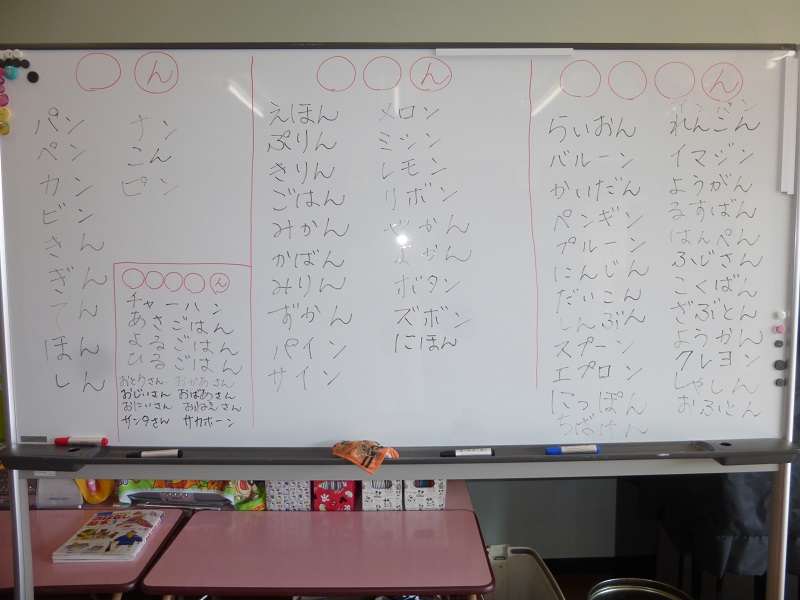 ん
パン
ペン
カン
ビン
きん
ぎん
てん
ほん
しん
ナン
こん
ピン
ん
チャーハン
あさごはん
よるごはん
ひるごはん
おとうさん おかあさん
おじいさん おばあさん
おにいさん おねえさん
サンタさん サカホーン
ん
えほん
ぷりん
きりん
ごはん
みかん
かばん
みりん
ずかん
パイン
サイン
メロン
ミシン
レモン
リボン
やかん
よかん
ボタン
ズボン
にほん
ん
らいおん
バルーン
かいだん
ペンギン
プルーン
にんじん
だいこん
しんぶん
スプーン
エプロン
にっぽん
ちばけん
れんこん
イマジン
ようがん
るすばん
はんぺん
ふじさん
こくばん
ざぶとん
ようかん
クレヨン
しゃしん